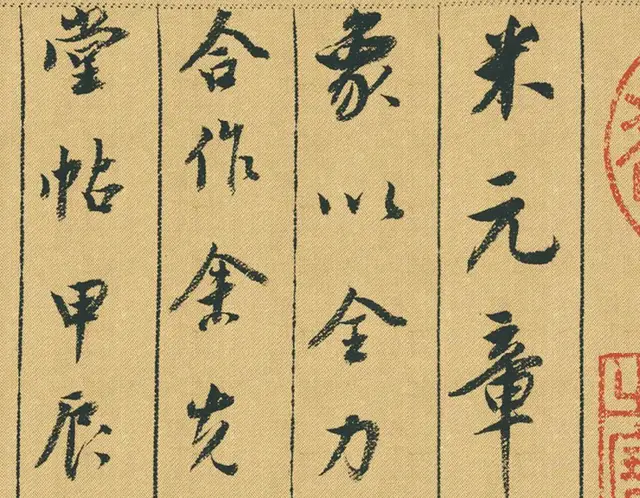 米元章
象以全力
合作余先
堂帖甲辰